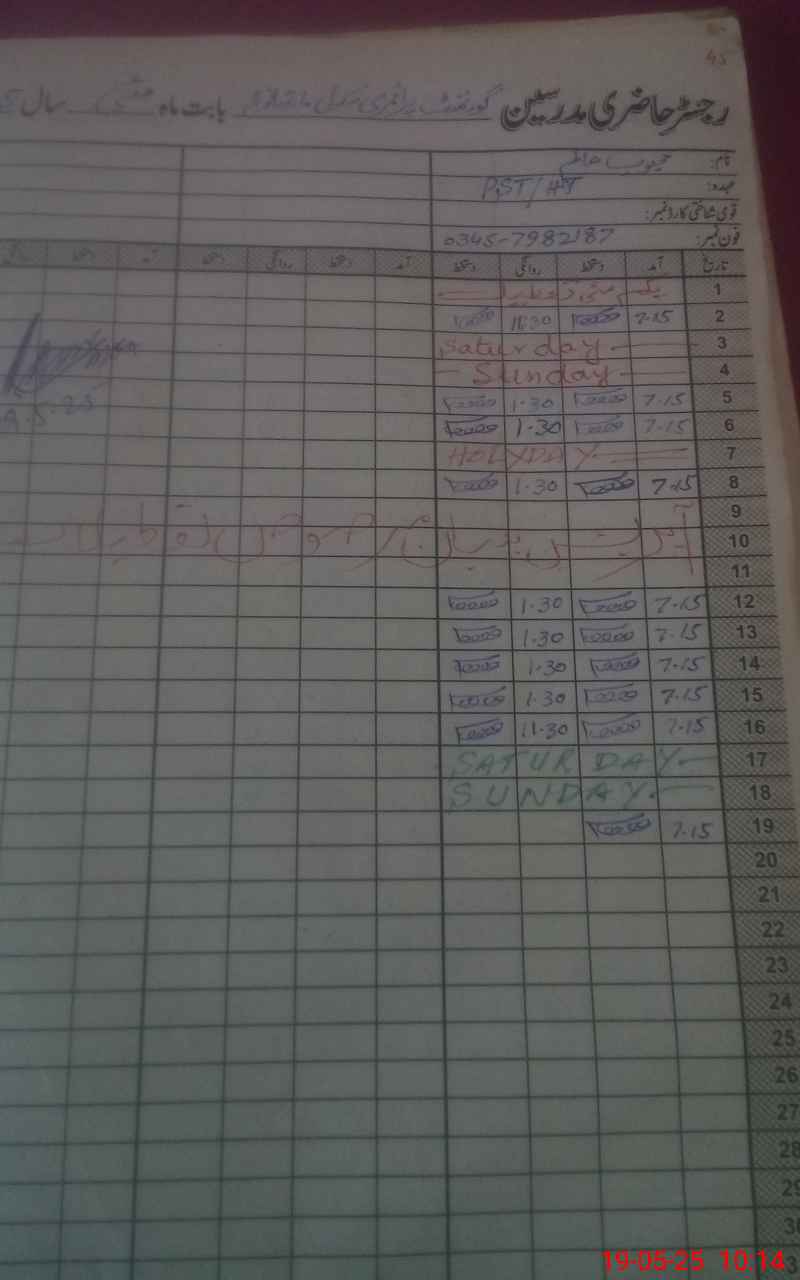 45
رجسٹر حاضری مدرسین گورنمنٹ پرائمری سکول بابت ماہ مئی سال
نام: محبوب عالم
عہدہ: PST/HT
قومی شناختی کارڈ نمبر:
فون نمبر: 0345-7982187
تاریخ آمد دستخط روانگی دستخط آمد دستخط روانگی دستخط آمد دستخط روانگی
1 یکم مئی تعطیل
2 7.15 11.30
3 Saturday
4 Sunday
5 7.15 1.30
6 7.15 1.30
7 HOLYDAY
8 7.15 1.30
9
10
11
12 7.15 1.30
13 7.15 1.30
14 7.15 1.30
15 7.15 1.30
16 7.15 11.30
17 SATURDAY
18 SUNDAY
19 7.15
20
21
22
23
24
25
26
27
28
29
30
19-05-25 10:14